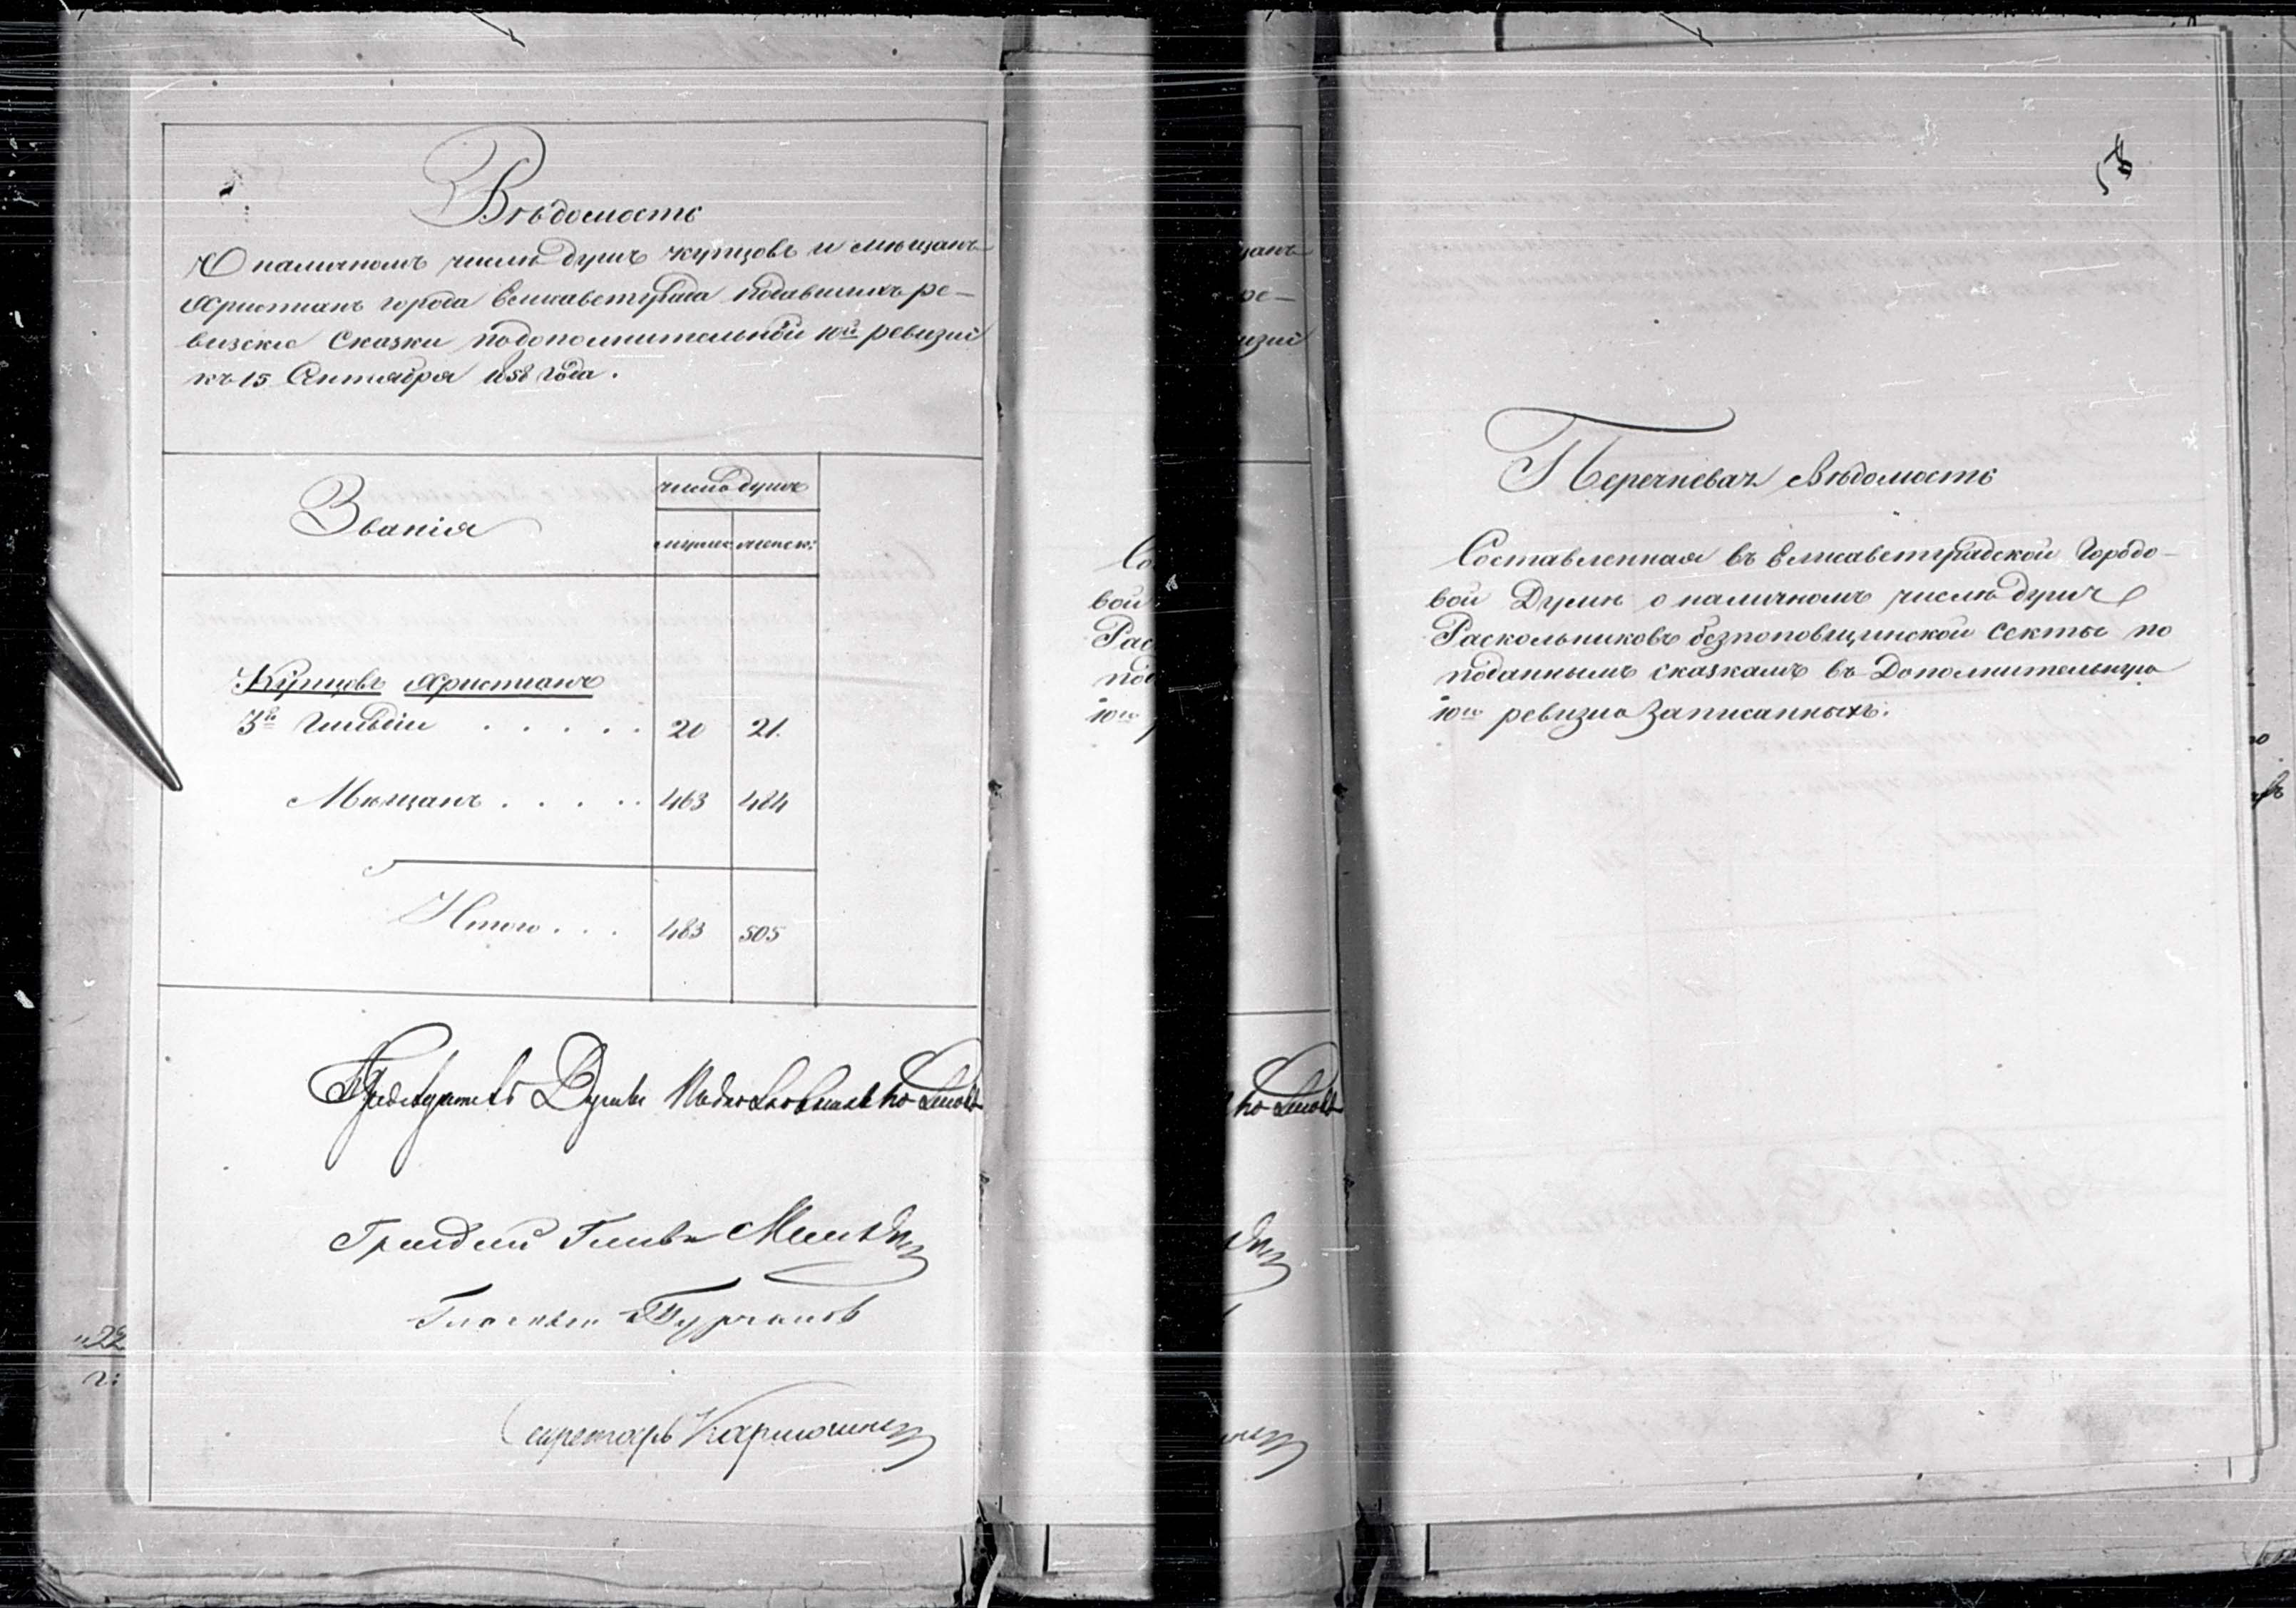 Вѣдомость
О наличномъ числѣ душъ купцовъ и мѣщанъ
Христианъ города Елисаветграда подавшихъ ре-
визские Сказки подополнительной 10й ревизии
къ 15 Сентября 1858 года.
Званія
число душъ
мужес. женск:
Купцовъ Христианъ
3й Гильдіи . . . . . 20 21.
Мѣщанъ . . . . . 463 484
Итого . . . 483 505
Думы
Гласный
Секретарь
58
Перечневая Вѣдомость
Составленная въ Елисаветградской Городо-
вой Думѣ о наличномъ числѣ душъ
Раскольниковъ безпоповщинской секты по
поданнымъ сказкамъ въ Дополнительную
10ю ревизию Записанныхъ.